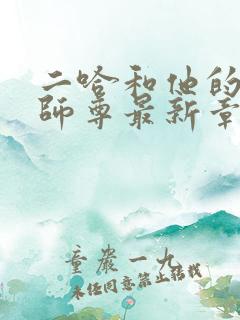 二哈和他的
師尊最新章
童嚴一九
未任同意禁止转载